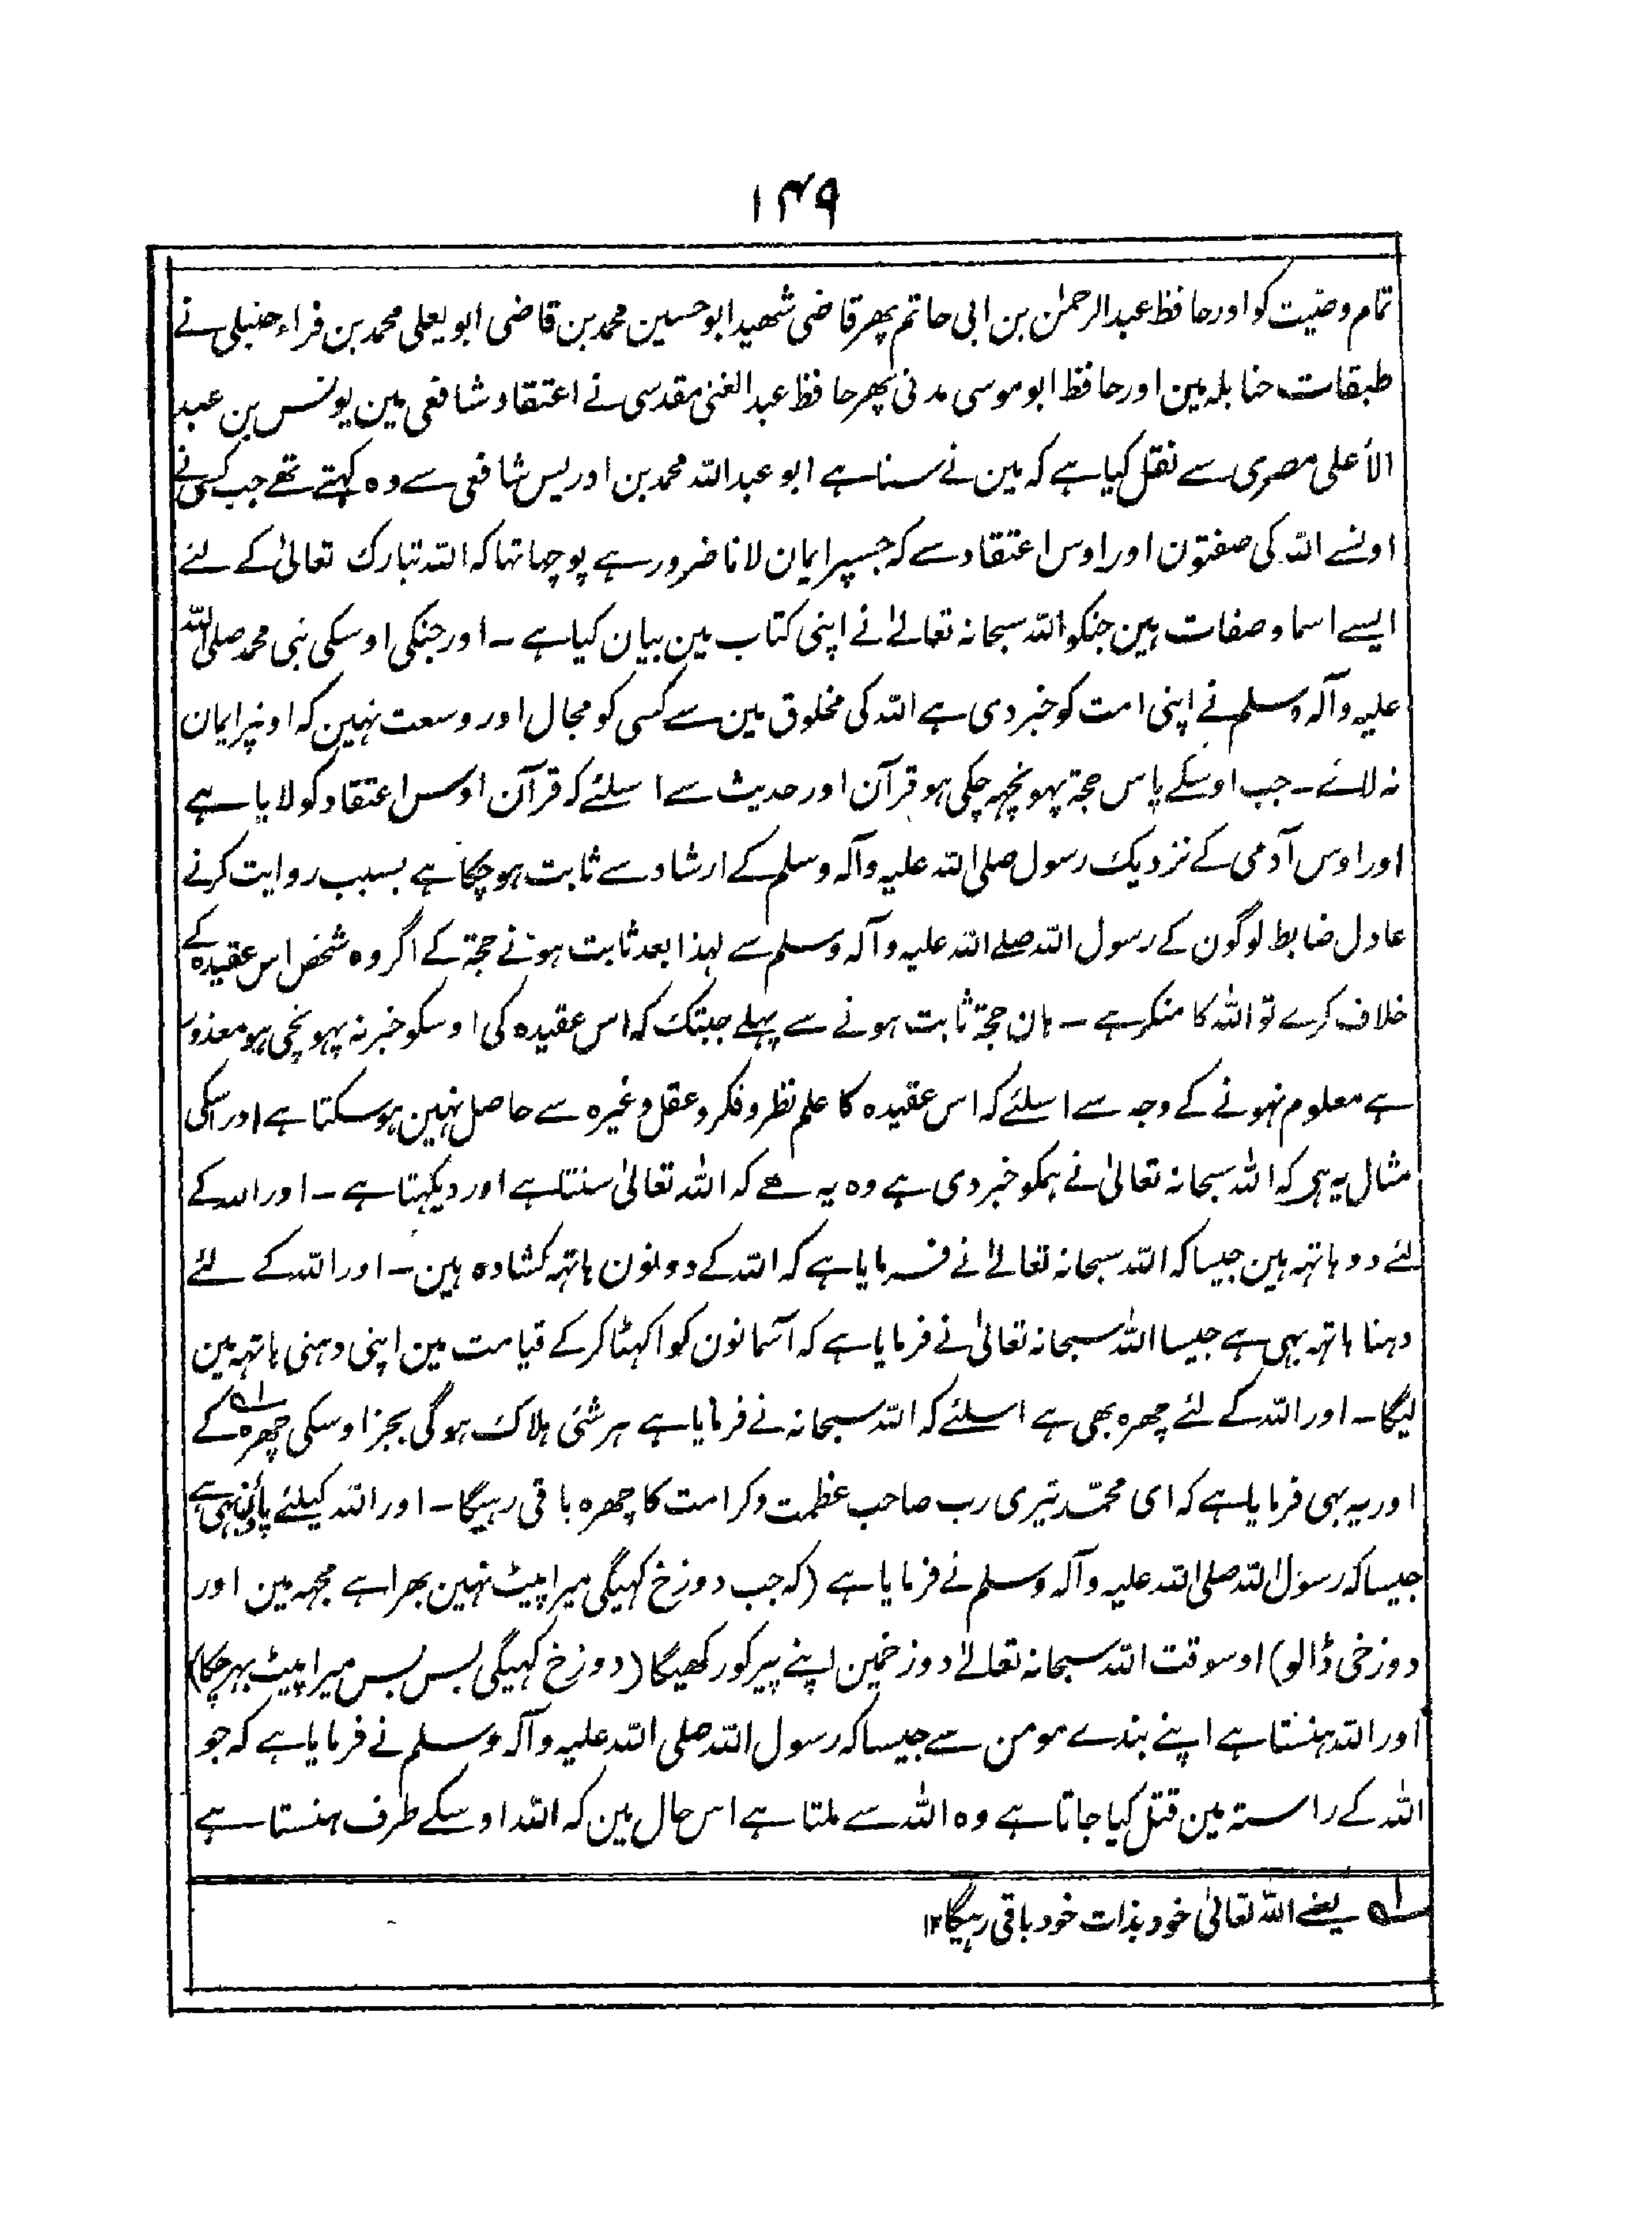 ۱۴۹
تمام وصیت کو اور حافظ عبدالرحمٰن بن ابی حاتم پھر قاضی شھید ابو حسین محمد بن قاضی ابو یعلی محمد بن فراء حنبلی نے
طبقات حنابلہ مین اور حافظ ابو موسی مدنی پھر حافظ عبدالغنی مقدسی نے اعتقاد شافعی مین یونس بن عبد
الأعلی مصری سے نقل کیا ہے کہ مین نے سنا ہے ابو عبداللہ محمد بن ادریس شافعی سے وہ کہتے تھے جب کسی نے
اونسے اللہ کی صفتون اور اوس اعتقاد سے کہ جسپر ایمان لانا ضرور ہے پوچھا تہا کہ اللہ تبارک تعالیٰ کے لئے
ایسے اسما و صفات ہین جنکو اللہ سبحانہ تعالےٰ نے اپنی کتاب مین بیان کیا ہے ۔ اور جنکی اوسکی نبی محمد صلی اللہ
علیہ وآلہ وسلم نے اپنی امت کو خبر دی ہے اللہ کی مخلوق مین سے کسی کو مجال اور وسعت نہین کہ اونپر ایمان
نہ لائے ۔ جب اوسکے پاس حجة پہونچہ چکی ہو قرآن اور حدیث سے اسلئے کہ قرآن اوس اعتقاد کو لایا ہے
اور اوس آدمی کے نزدیک رسول صلی اللہ علیہ وآلہ وسلم کے ارشاد سے ثابت ہوچکا ہے بسبب روایت کرنے
عادل ضابط لوگون کے رسول اللہ صلے اللہ علیہ وآلہ وسلم سے لہذا بعد ثابت ہونے حجة کے اگر وہ شخص اس عقیدہ کے
خلاف کرے تو اللہ کا منکر ہے ۔ ہان حجة ثابت ہونے سے پہلے جبتک کہ اس عقیدہ کی اوسکو خبر نہ پہونچی ہو معذور
ہے معلوم نہونے کے وجہ سے اسلئے کہ اس عقیدہ کا علم نظر و فکر و عقل وغیرہ سے حاصل نہین ہوسکتا ہے اور اسکی
مثال یہ ہی کہ اللہ سبحانہ تعالیٰ نے ہمکو خبر دی ہے وہ یہ ھے کہ اللہ تعالیٰ سنتا ہے اور دیکہتا ہے ۔ اور اللہ کے
لئے دو ہاتہہ ہین جیسا کہ اللہ سبحانہ تعالےٰ نے فرمایا ہے کہ اللہ کے دونون ہاتہہ کشادہ ہین ۔ اور اللہ کے لئے
دہنا ہاتہہ بہی ہے جیسا اللہ سبحانہ تعالیٰ نے فرمایا ہے کہ آسمانون کو اکہٹا کرکے قیامت مین اپنی دہنی ہاتہہ مین
لیگا ۔ اور اللہ کے لئے چھرہ بھی ہے اسلئے کہ اللہ سبحانہ نے فرمایا ہے ہر شئی ہلاک ہوگی بجز اوسکی چھرہ کے ۱؎
اور یہ بہی فرمایا ہے کہ ای محمد تیری رب صاحب عظمت و کرامت کا چھرہ باقی رہیگا ۔ اور اللہ کیلئے پاؤن بہی ہے
جیسا کہ رسول اللہ صلی اللہ علیہ وآلہ وسلم نے فرمایا ہے (کہ جب دوزخ کہیگی میرا پیٹ نہین بھرا ہے مجہہ مین اور
دوزخی ڈالو) اوسوقت اللہ سبحانہ تعالےٰ دوزخمین اپنے پیر کو رکھیگا (دوزخ کہیگی بس بس میرا پیٹ بہر چکا)
اور اللہ ہنستا ہے اپنے بندے مومن سے جیسا کہ رسول اللہ صلی اللہ علیہ وآلہ وسلم نے فرمایا ہے کہ جو
اللہ کے راستہ مین قتل کیا جاتا ہے وہ اللہ سے ملتا ہے اس حال مین کہ اللہ اوسکے طرف ہنستا ہے
۱؎ یعنے اللہ تعالیٰ خود بذات خود باقی رہیگا ۱۲